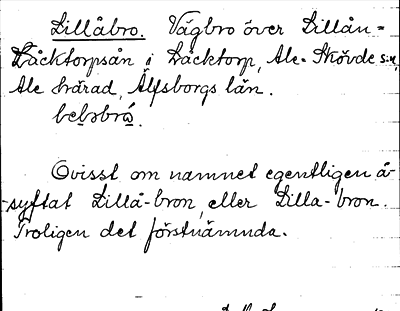 Lillåbro. Vägbro över Lillån =
Låcktorpsån i Låcktorp, Ale-Skövde sn,
Ale härad, Älfsborgs län.
Ovisst om namnet egentligen å-
syftat Lillå-bron, eller Lilla-bron.
Troligen det förstnämnda.